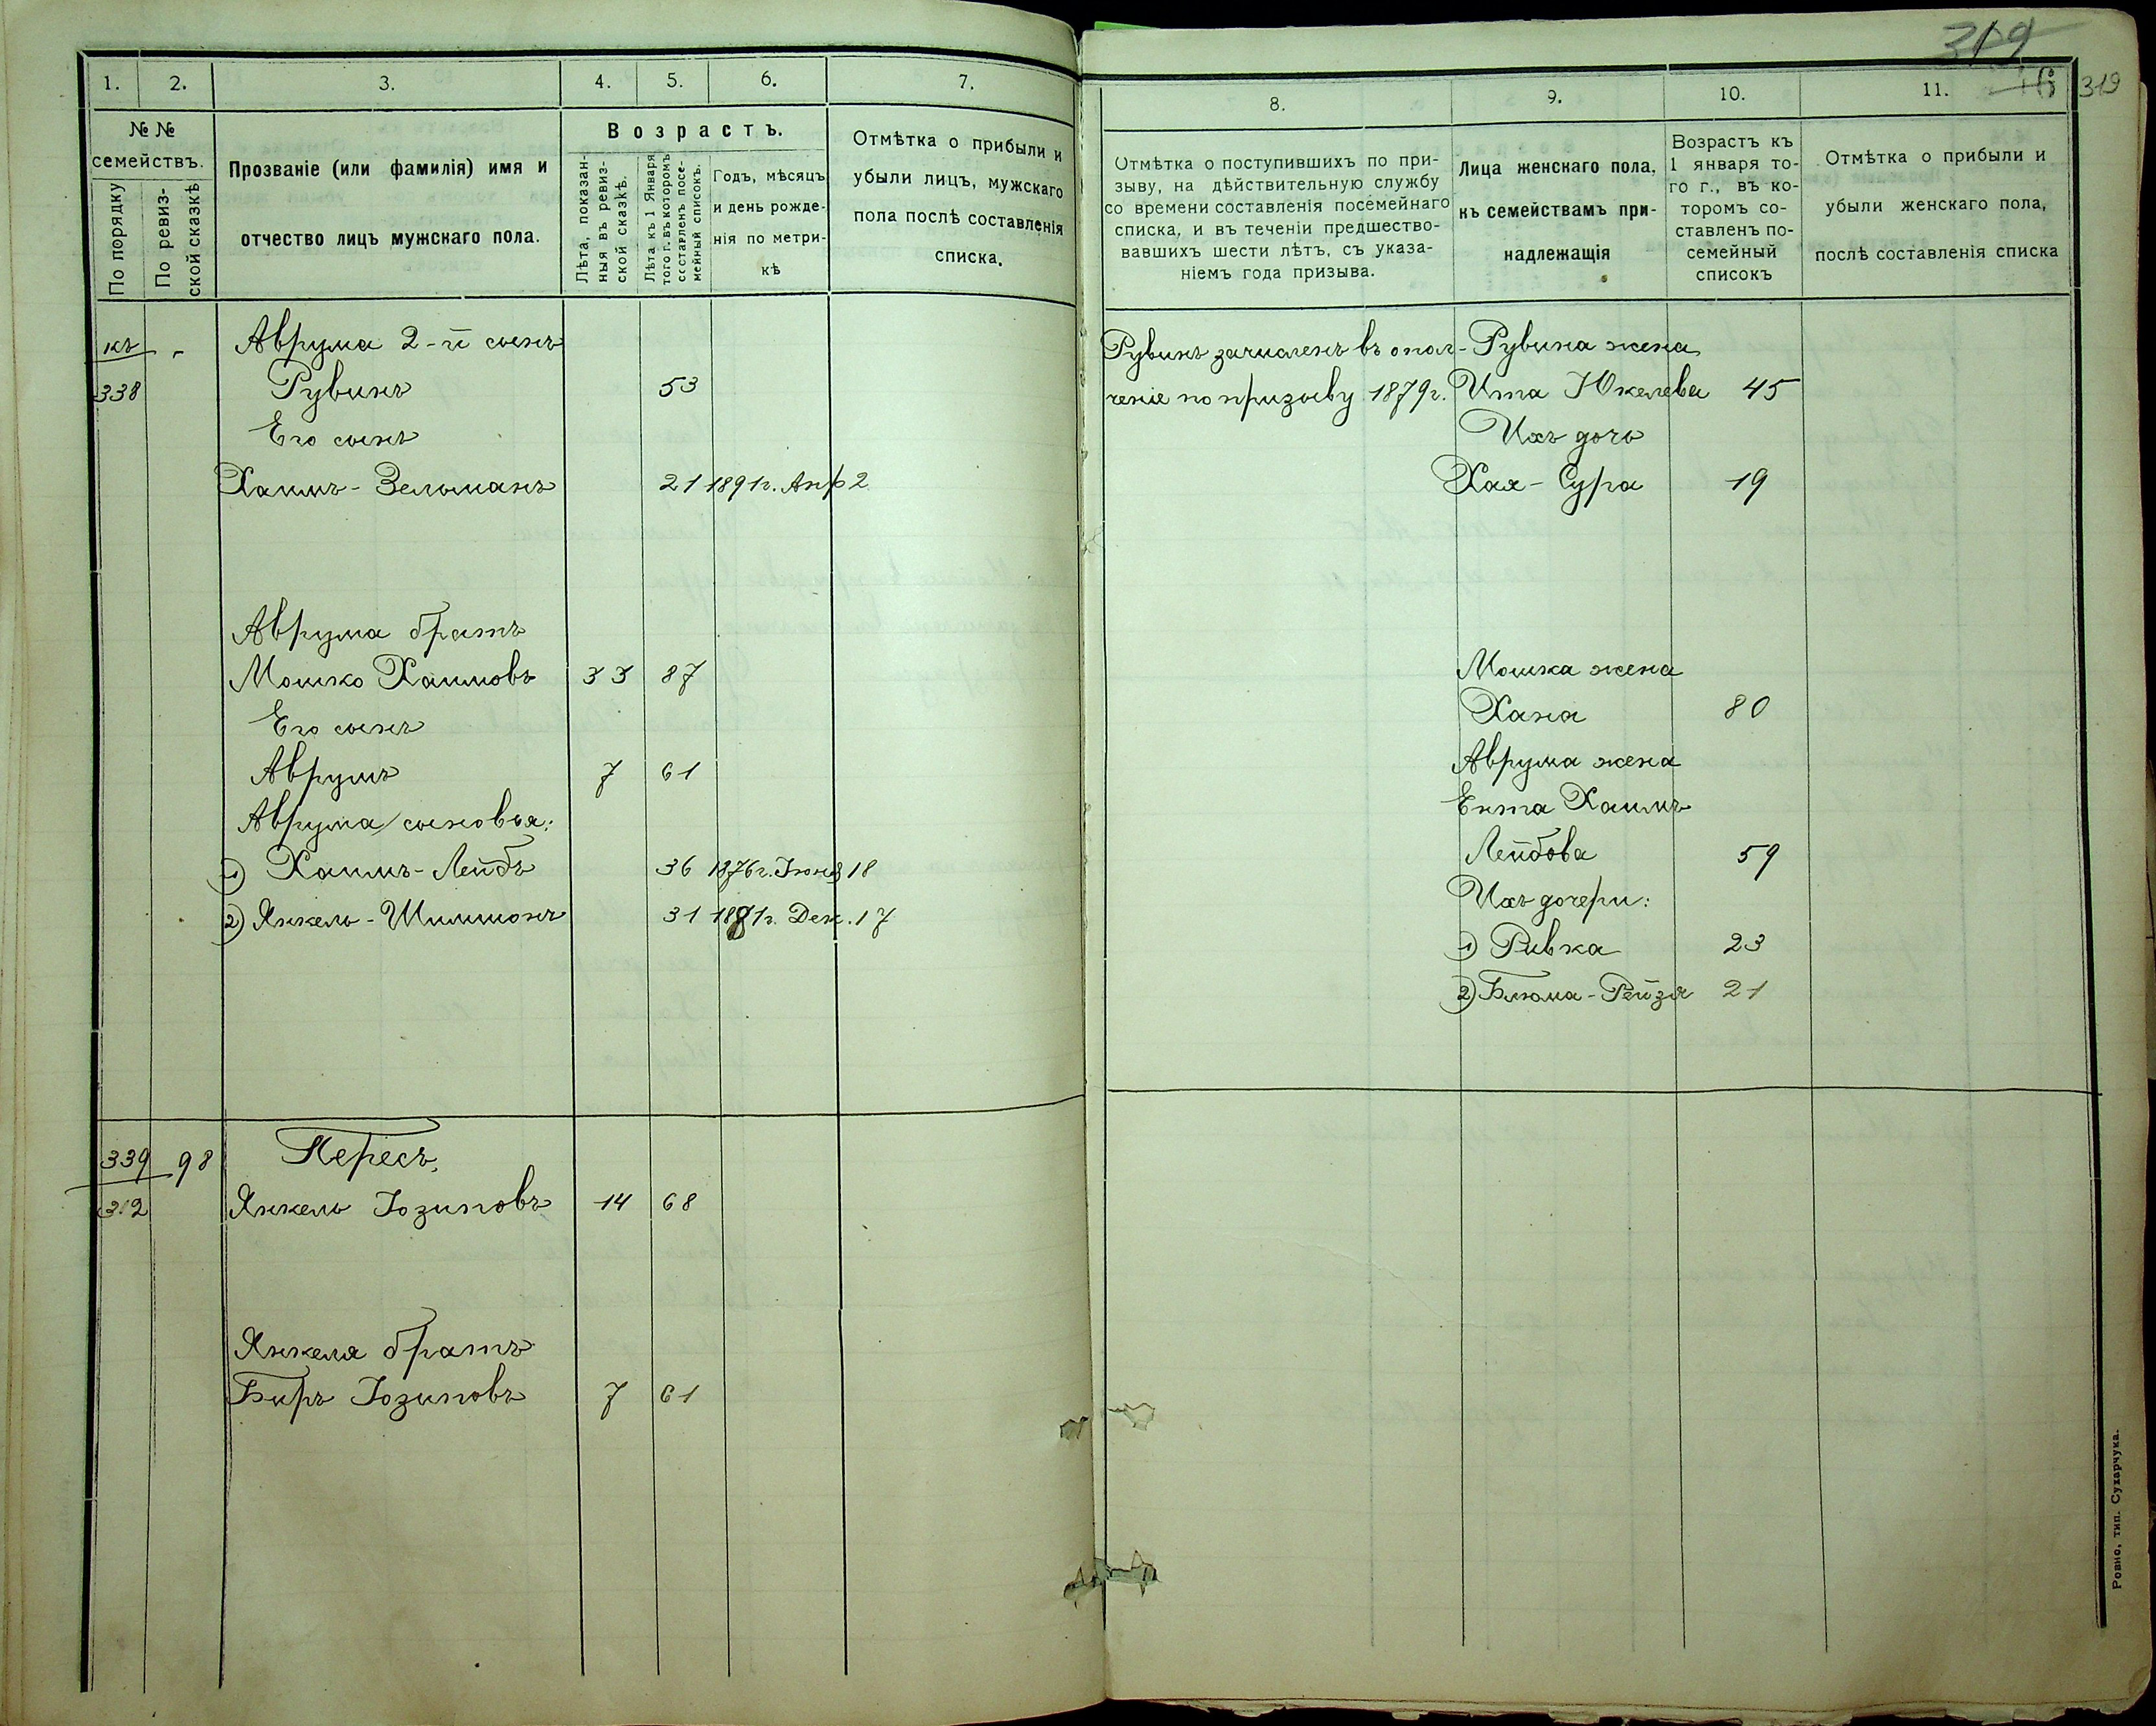 1.
2.
3.
4.
5.
6.
7.
№ №
семействъ.
По порядку
По ревиз-
ской сказкѣ
Прозваніе (или фамилія) имя и
отчество лицъ мужскаго пола.
Возрастъ.
Лѣта, показан-
ныя въ ревиз-
ской сказкѣ.
Лѣта къ 1 Января
того г. въ которомъ
составленъ посе-
мейный списокъ.
Годъ, мѣсяцъ
и день рожде-
нія по метри-
кѣ
Отмѣтка о прибыли и
убыли лицъ, мужскаго
пола послѣ составленія
списка.
къ - Аврума 2-й сынъ
338 Рувинъ 53
Его сынъ
Хаимъ-Зельманъ 21 1891г. Апр 2
Аврума братъ
Мошко Хаимовъ 33 87
Его сынъ
Аврумъ 7 61
Аврума сыновья:
1) Хаимъ-Лейбъ 36 1876г. Іюня 18
2) Янкель-Шиммонъ 31 1881г. Дек. 17
339 98 Пересъ,
312 Янкель Іозиповъ 14 68
Янкеля братъ
Биръ Іозиповъ 7 61
319
319
8.
9.
10.
11.
Отмѣтка о поступившихъ по при-
зыву, на дѣйствительную службу
со времени составленія посемейнаго
списка, и въ теченіи предшество-
вавшихъ шести лѣтъ, съ указа-
ніемъ года призыва.
Лица женскаго пола,
къ семействамъ при-
надлежащія
Возрастъ къ
1 января то-
го г., въ ко-
торомъ со-
ставленъ по-
семейный
списокъ
Отмѣтка о прибыли и
убыли женскаго пола,
послѣ составленія списка
Рувинъ зачисленъ въ опол- Рувина жена
ченіе по призыву 1879г. Ита Юкелева 45
Ихъ дочь
Хая-Сура 19
Мошка жена
Хана 80
Аврума жена
Ента Хаимъ
Лейбова 59
Ихъ дочери:
1) Ривка 23
2) Блюма-Рейзя 21
Ровно, тип. Сухарчука.